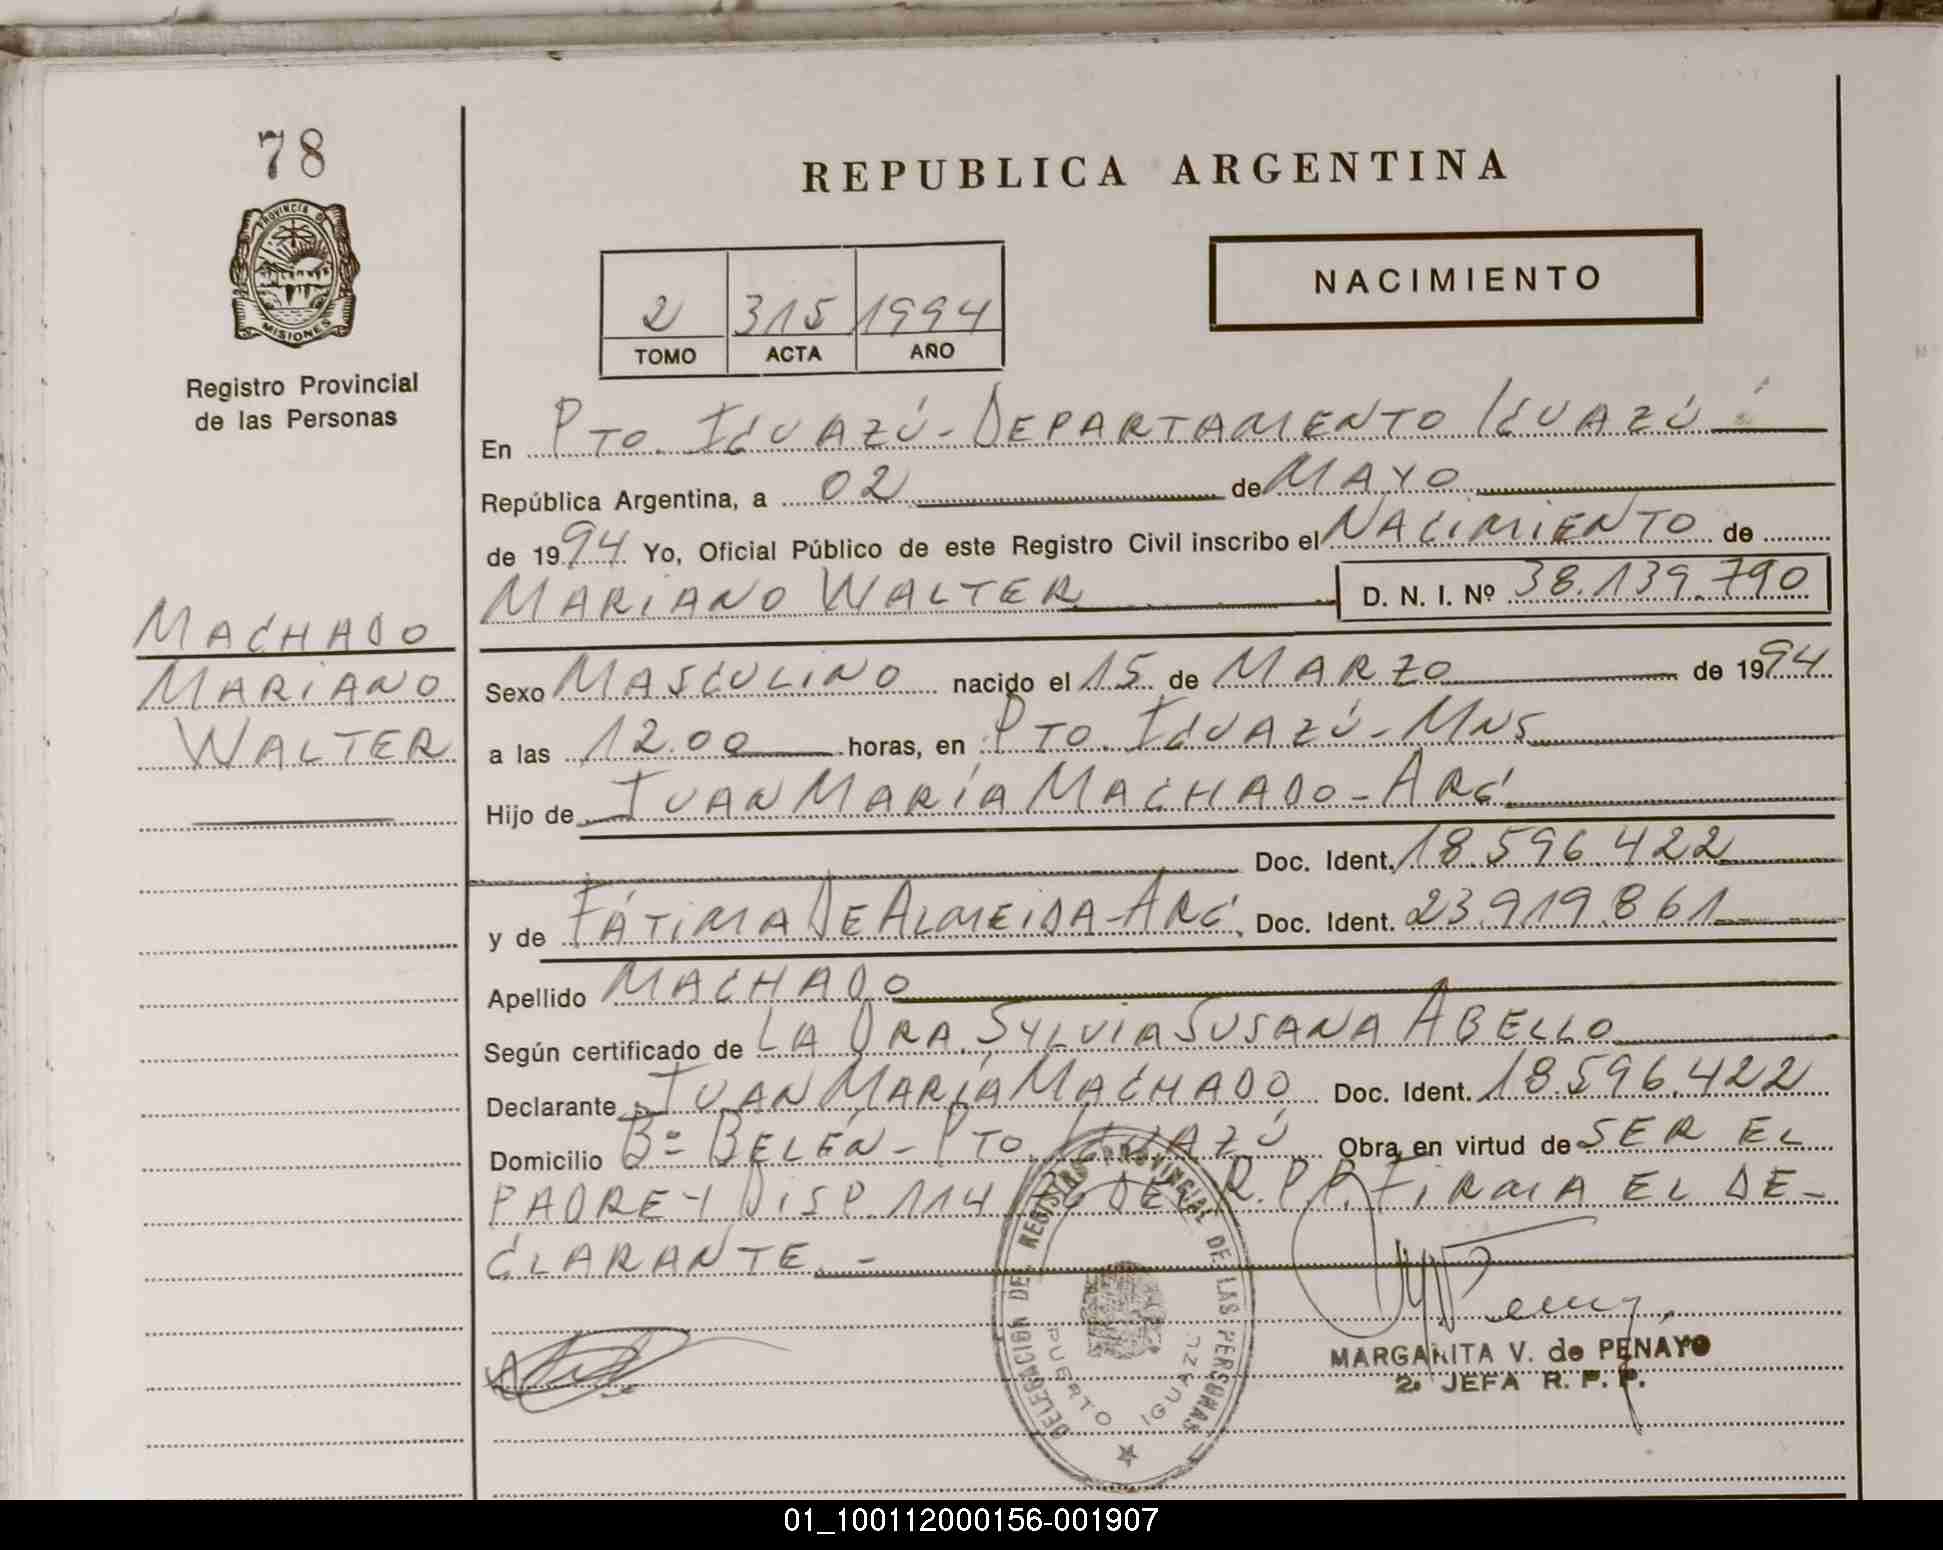 78
PROVINCIA DE
MISIONES
Registro Provincial
de las Personas
MACHADO
MARIANO
WALTER
REPUBLICA ARGENTINA
NACIMIENTO
2 315 1994
TOMO ACTA AÑO
En PTO. IGUAZÚ - DEPARTAMENTO IGUAZÚ
República Argentina, a 02 de MAYO
de 1994 Yo, Oficial Público de este Registro Civil inscribo el NACIMIENTO de
MARIANO WALTER D. N. I. Nº 38.139.790
Sexo MASCULINO nacido el 15 de MARZO de 1994
a las 12.00 horas, en PTO. IGUAZÚ - MNS
Hijo de JUAN MARÍA MACHADO - ARG.
Doc. Ident. 18.596.422
y de FÁTIMA DE ALMEIDA - ARG. Doc. Ident. 23.919.861
Apellido MACHADO
Según certificado de LA DRA. SYLVIA SUSANA ABELLO
Declarante JUAN MARÍA MACHADO Doc. Ident. 18.596.422
Domicilio Bº BELÉN - PTO. IGUAZÚ Obra en virtud de SER EL
PADRE Y DISP. 114 DEL R.P.P. FIRMA EL DE-
CLARANTE. -
DELEGACION DEL REGISTRO PROVINCIAL DE LAS PERSONAS
PUERTO IGUAZU
MARGARITA V. de PENAYO
2. JEFA R. P. P.
01_100112000156-001907